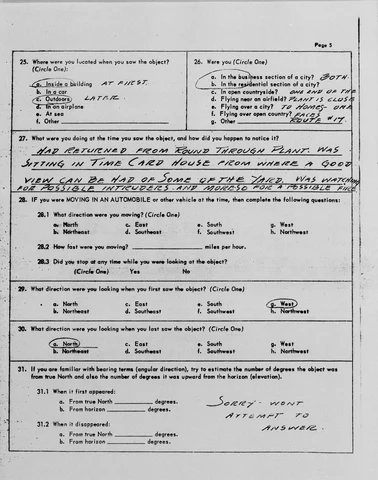 Page 5
25. Where were you located when you saw the object? 26. Were you (Circle One)
(Circle One):
a. Inside a building AT FIRST. a. In the business section of a city? BOTH.
b. In a car b. In the residential section of a city?
c. Outdoors LATER. c. In open countryside? ONE END OF THE
d. In an airplane d. Flying near an airfield? PLANT IS CLOSE
e. At sea e. Flying over a city? TO HOMES- ONE
f. Other f. Flying over open country? FACES
g. Other ROUTE #17.
27. What were you doing at the time you saw the object, and how did you happen to notice it?
HAD RETURNED FROM ROUND THROUGH PLANT. WAS
SITTING IN TIME CARD HOUSE FROM WHERE A GOOD
VIEW CAN BE HAD OF SOME OF THE YARD. WAS WATCHING
FOR POSSIBLE INTRUDERS AND MORESO FOR A POSSIBLE FIRE
28. IF you were MOVING IN AN AUTOMOBILE or other vehicle at the time, then complete the following questions:
28.1 What direction were you moving? (Circle One)
a. North c. East e. South g. West
b. Northeast d. Southeast f. Southwest h. Northwest
28.2 How fast were you moving? miles per hour.
28.3 Did you stop at any time while you were looking at the object?
(Circle One) Yes No
29. What direction were you looking when you first saw the object? (Circle One)
a. North c. East e. South g. West
b. Northeast d. Southeast f. Southwest h. Northwest
30. What direction were you looking when you last saw the object? (Circle One)
a. North c. East e. South g. West
b. Northeast d. Southeast f. Southwest h. Northwest
31. If you are familiar with bearing terms (angular direction), try to estimate the number of degrees the object was
from true North and also the number of degrees it was upward from the horizon (elevation).
31.1 When it first appeared:
a. From true North degrees. SORRY- WONT
b. From horizon degrees. ATTEMPT TO
31.2 When it disappeared: ANSWER.
a. From true North degrees.
b. From horizon degrees.